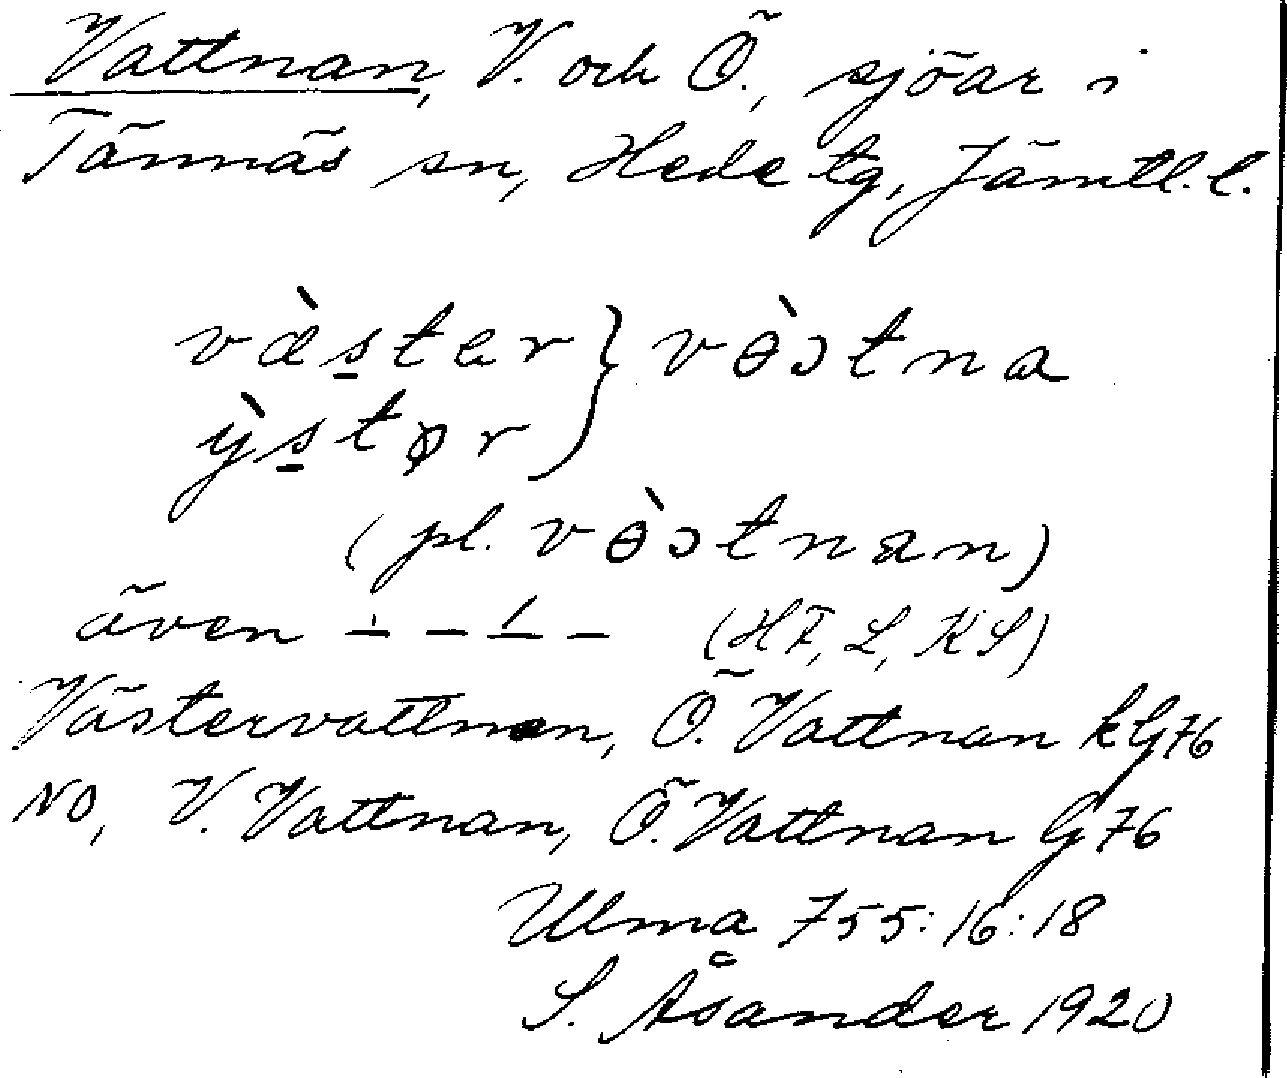 Vattnan, V. och Ö., sjöar i
Tännäs sn, Hede tg, Jämtl. l.
væ̀s̱ter } vɵ̀ɔtna
ỳs̱tør
(pl. vɵ̀ɔtnan)
även – – –́ – (HF, L, KS)
Västervattnen, Ö. Vattnan kG76
NO, V. Vattnan, Ö. Vattnan G76
Ulma 755:16:18
S. Åsander 1920